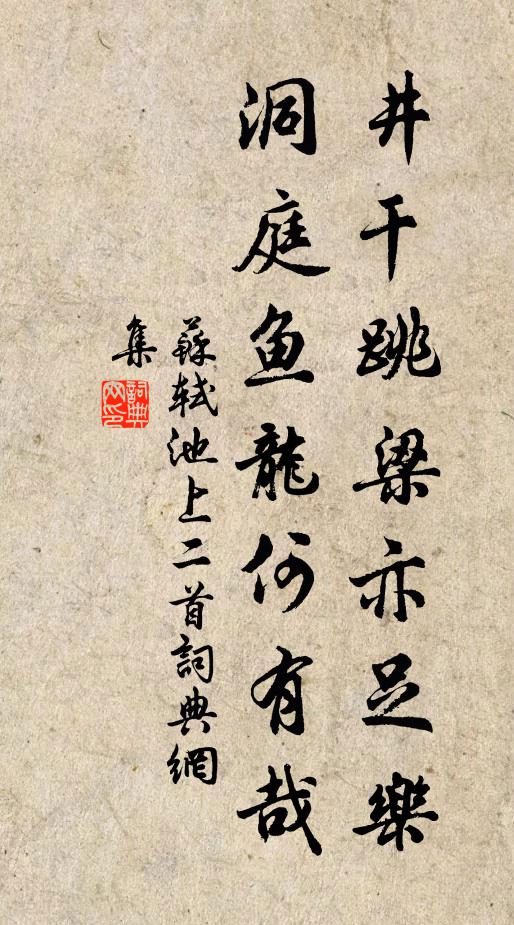 井干跳梁亦足樂
洞庭鱼龍何有哉
蘇軾池上二首詞典網
集
詞典
网印